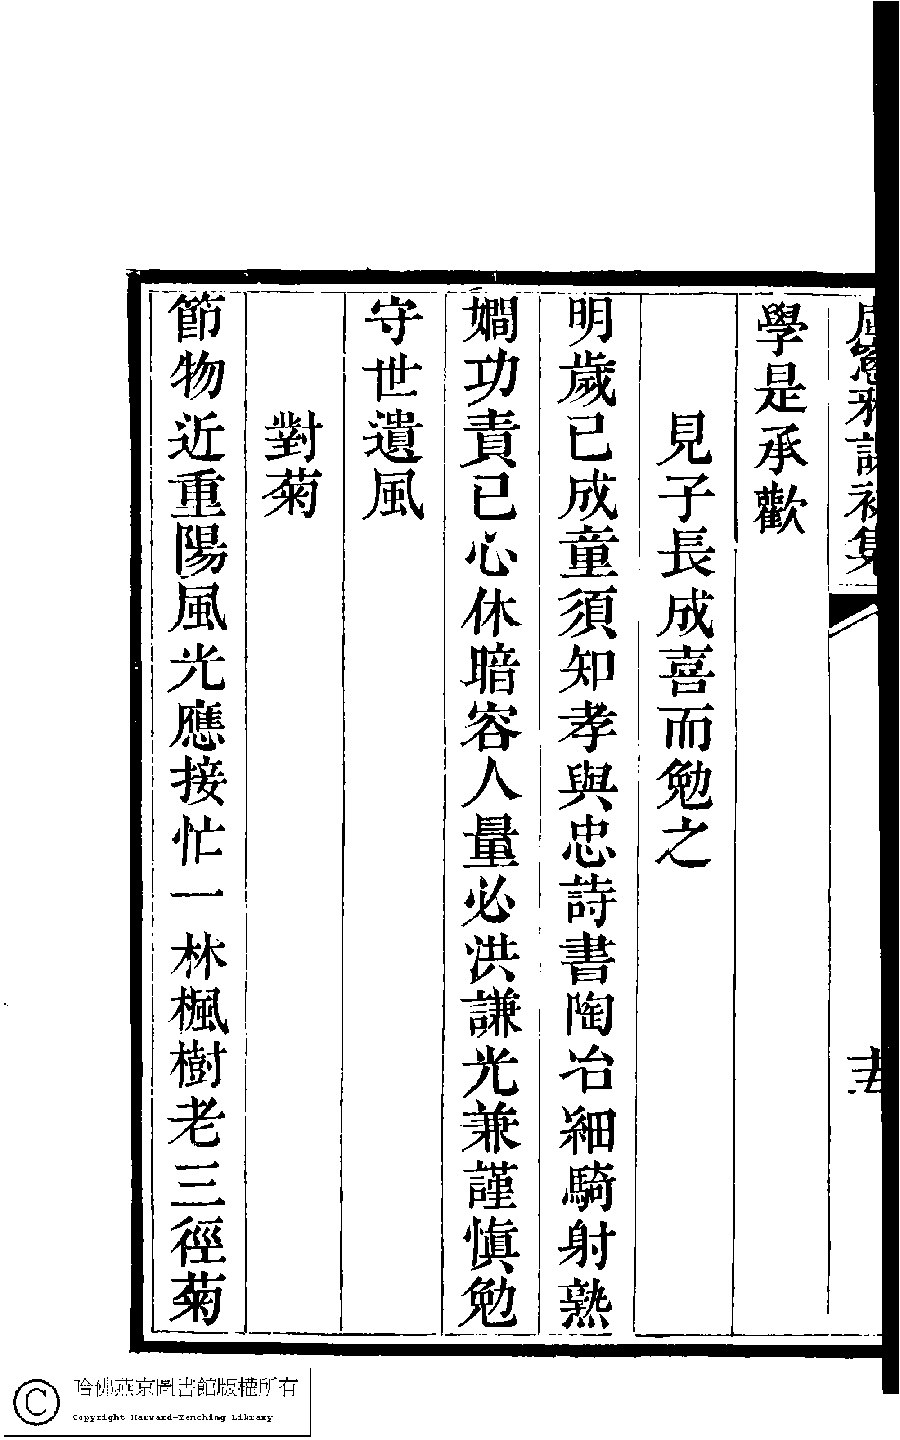 學是承歡
見子長成喜而勉之
明歲已成童須知孝與忠詩書陶冶細騎射熟
嫺功責已心休暗容人量必洪謙光兼謹慎勉
守世遺風
對菊
節物近重陽風光應接忙一林楓樹老三徑菊
哈佛燕京圖書館版權所有
Copyright Harvard-Yenching Library